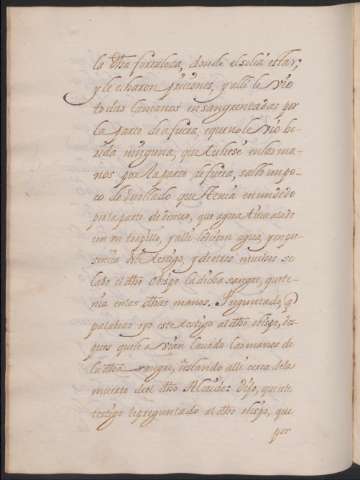 la dha fortaleza, donde el solia estar,
y le echaron prisiones, y alli le vio
todas las manos ensangrentadas por
la parte de afuera, e que no le vio he-
rida ninguna, que tubiese en las ma-
nos por la parte de fuera, salvo un po-
co desollado que tenia en un dedo
por la parte de dentro, que aqua
con un trapillo, y alli le dieron agua, en pre-
sencia del testigo, y de otros muchos se
labo el dho Obispo la dicha sangre, que te-
nia en las dhas manos. Preguntado, q
palabras oyo este testigo al dho obispo, des-
pues que le a vian lavado las manos de
la dha sangre, estando alli cerca de la
muerte del dho Alcaide? Dijo, que este
testigo le preguntado al dho obispo, que
por